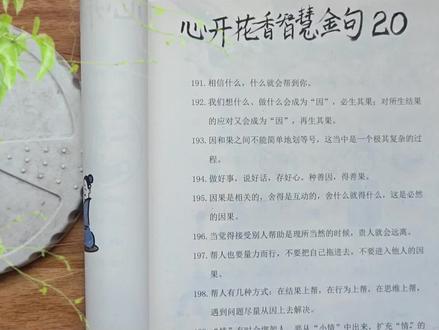 心开花香智慧金句20
191. 相信什么，什么就会帮到你。
192. 我们想什么、做什么会成为“因”，必生其果；对所生结
的应对又会成为“因”，再生其果。
193. 因和果之间不能简单地划等号，这当中是一个极其复杂的过
程。
194. 做好事，说好话，存好心，种善因，得善果。
195. 因果是相关的，舍得是互动的，舍什么就得什么，这是必然
的因果。
196. 当觉得接受别人帮助是现所当然的时候，贵人就会远离。
197. 帮人也要量力而行，不要把自己拖进去，不要进入他人的因
果。
198. 帮人有几种方式：在结果上帮，在行为上帮，在思维上帮，
遇到问题尽量从因上去解决。